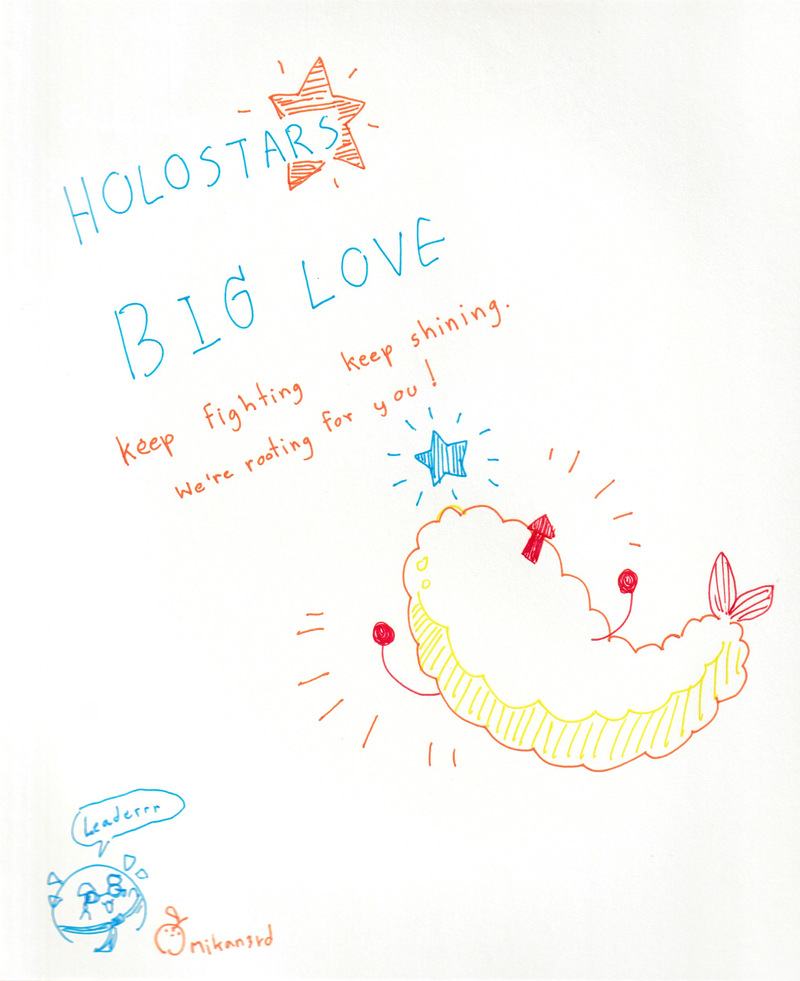 HOLOSTARS
BIG LOVE
keep fighting keep shining.
We're rooting for you!
Leaderrr
mikan3rd